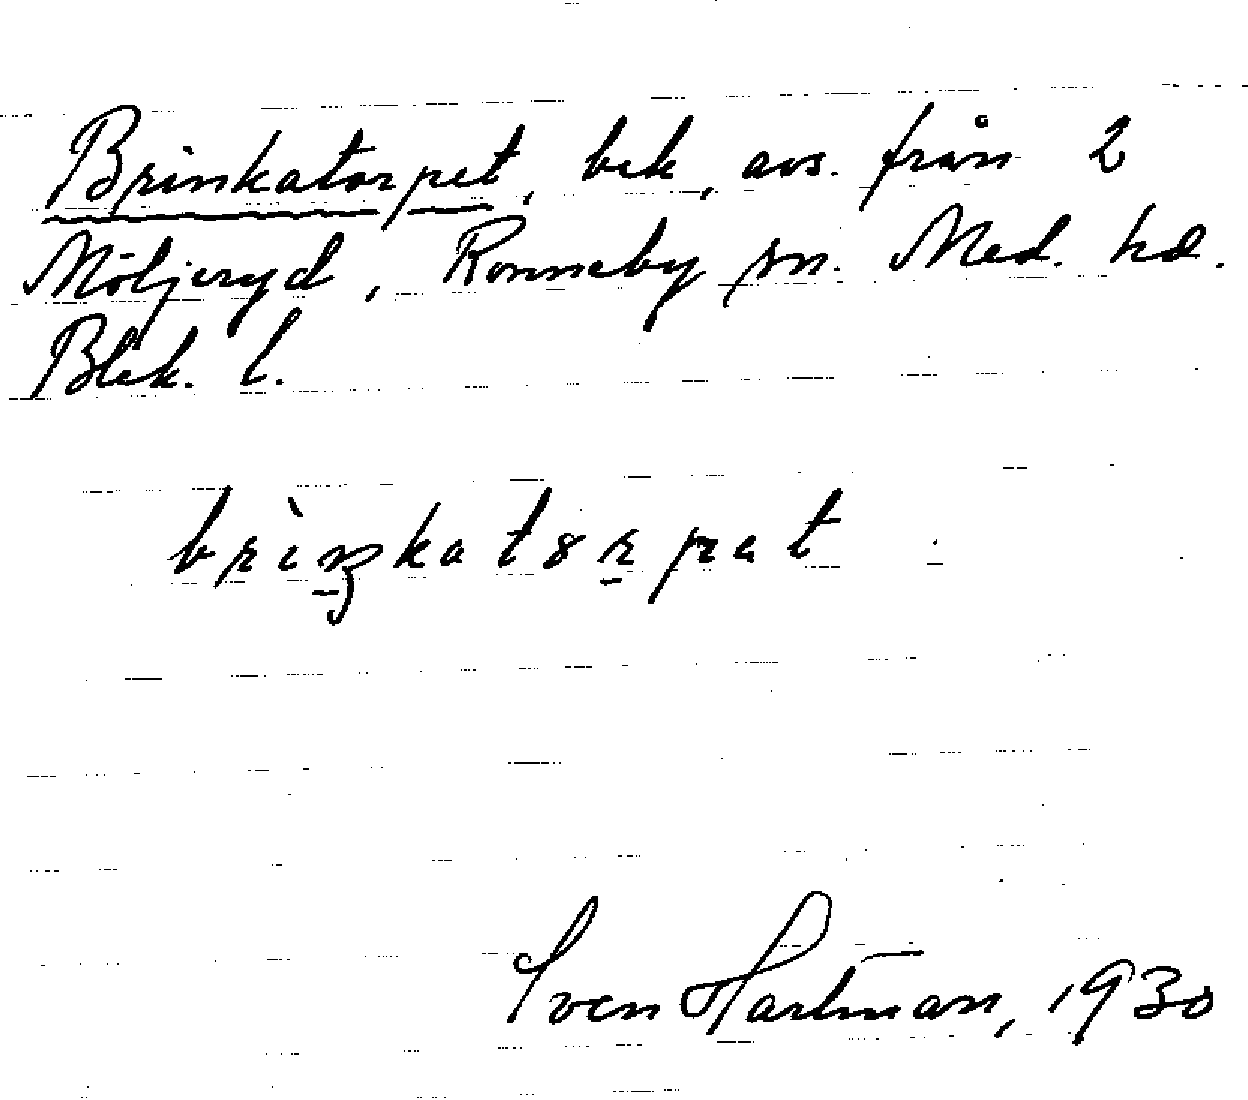 Brinkatorpet, bek, avs. från 2
Möljeryd, Ronneby sn. Med. hd.
Blek. l.
brìŋkatorpat
Sven Hartman, 1930